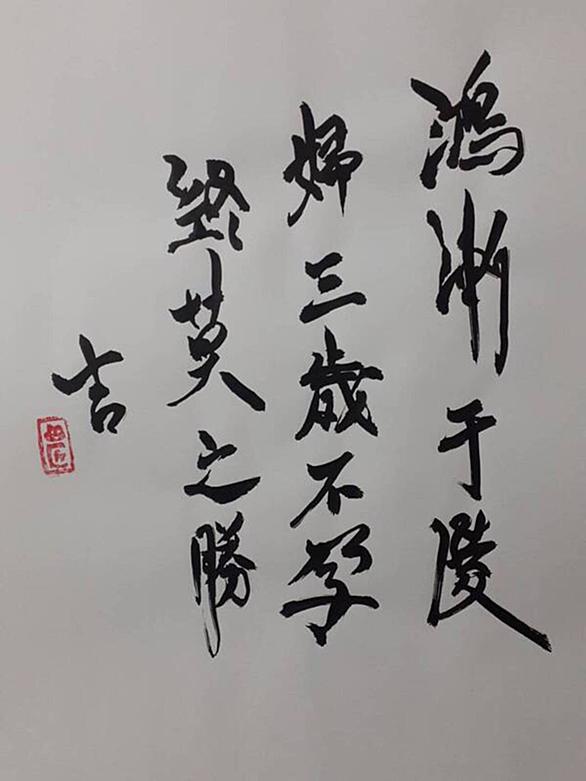 鴻漸于陵
婦三歲不孕
終莫之勝
吉